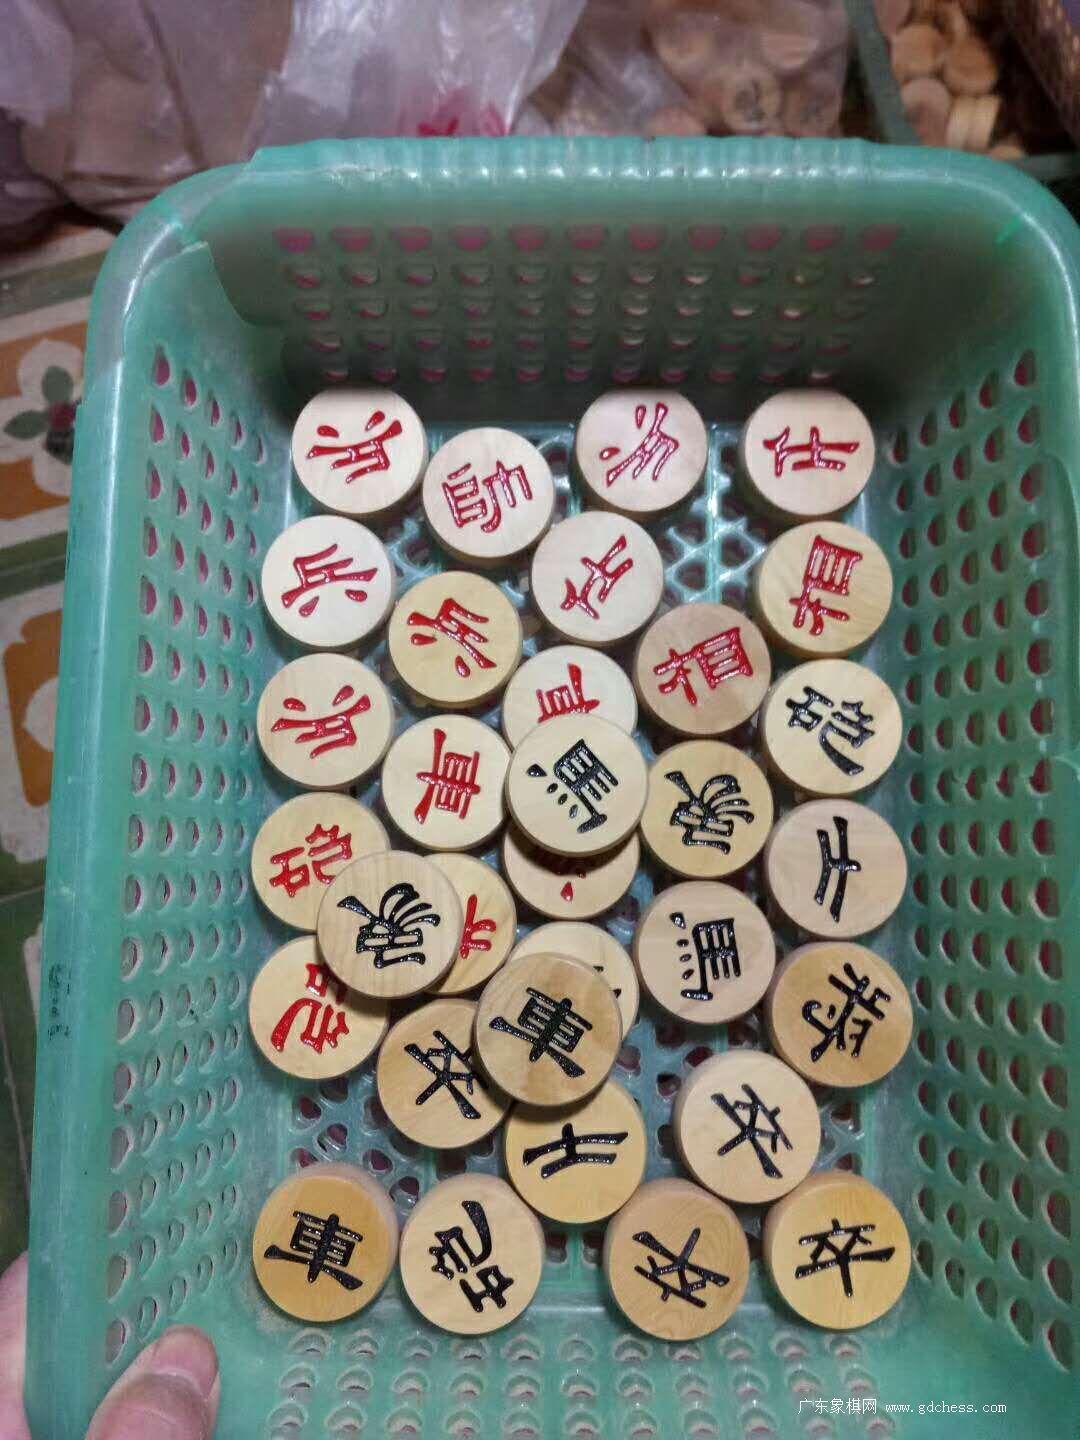 兵
兵
仕
帥
仕
相
兵
兵
相
兵
砲
車
馬
象
砲
士
象
馬
砲
將
車
卒
卒
士
車
砲
卒
卒
广东象棋网 www.gdchess.com